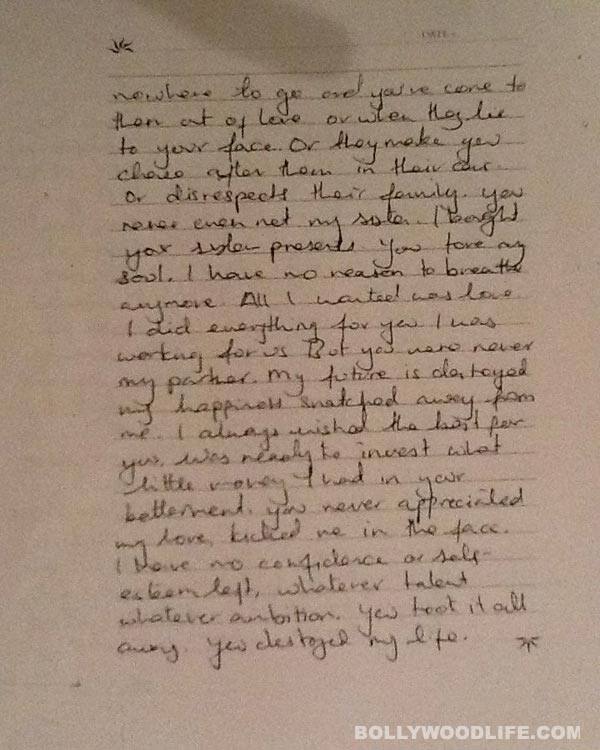 DATE:
nowhere to go and you've come to
them out of love or when they lie
to your face. Or they make you
chase after them in their car.
Or disrespects their family. You
never even met my sister. I bought
your sister presents. You tore my
soul. I have no reason to breathe
anymore. All I wanted was love.
I did everything for you I was
working for us But you were never
my partner. My future is destroyed
my happiness snatched away from
me. I always wished the best for
you, was ready to invest what
little money I had in your
betterment. You never appreciated
my love, kicked me in the face.
I have no confidence or self-
esteem left, whatever talent
whatever ambition. You took it all
away. You destroyed my life.
BOLLYWOODLIFE.COM